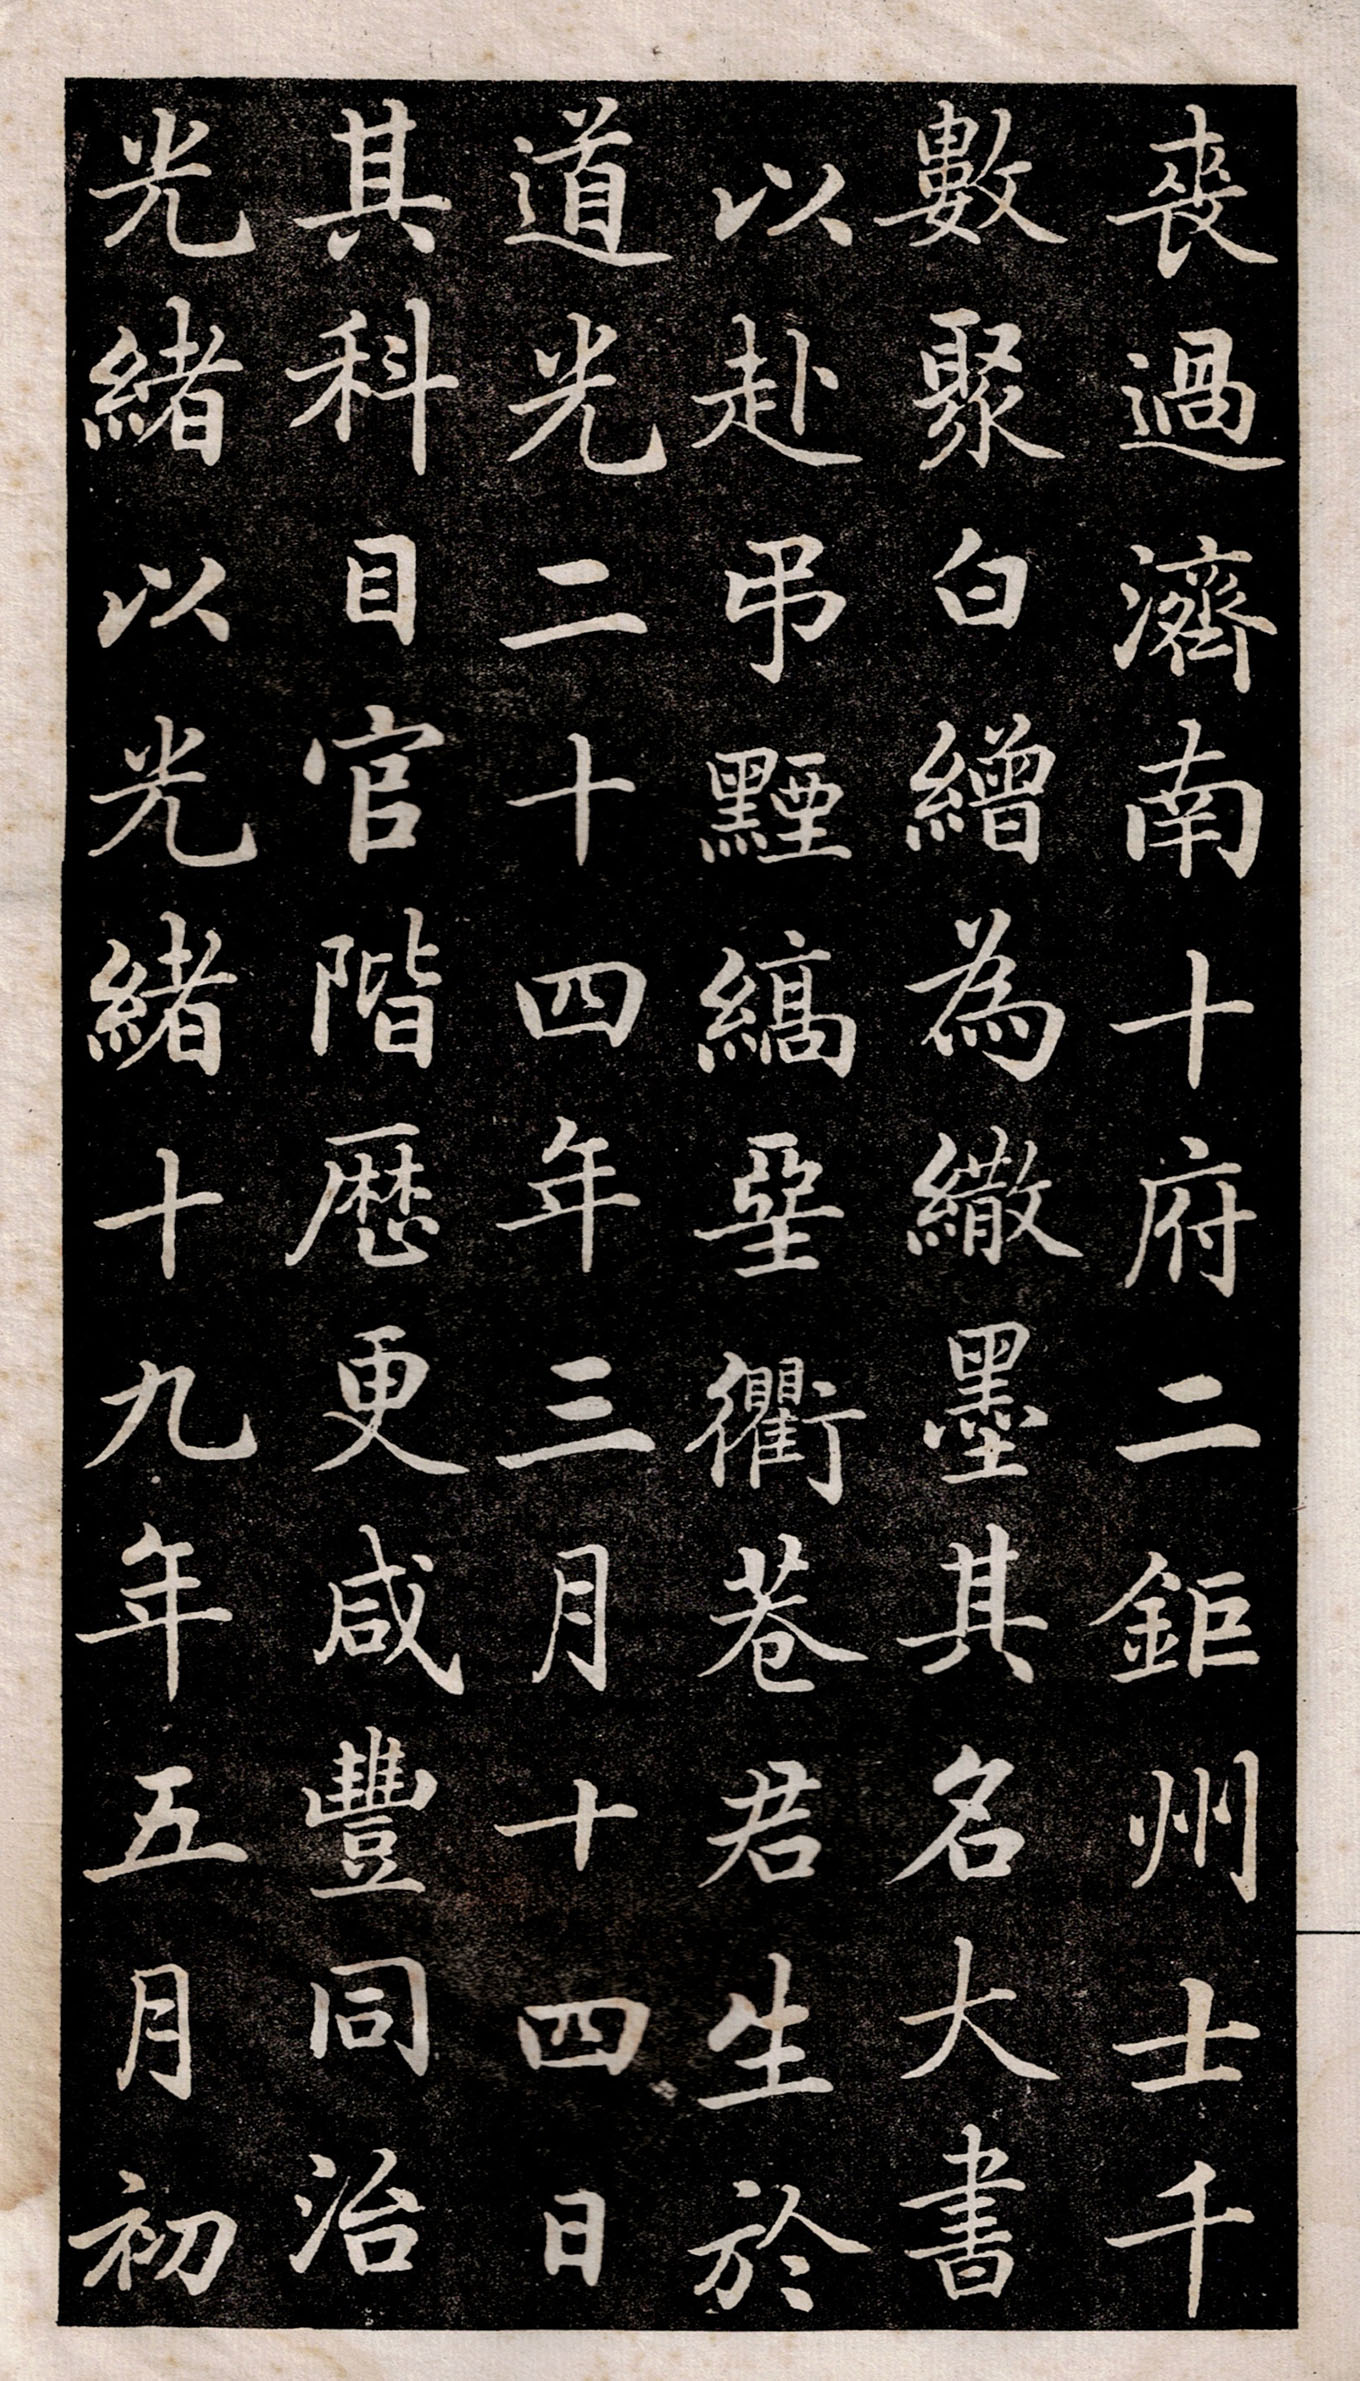 喪過濟南十府二鉅州士千
數聚白繒為繖墨其名大書
以赴弔黫縞堊衢巷君生於
道光二十四年三月十四日
其科目官階歷更咸豐同治
光緒以光緒十九年五月初